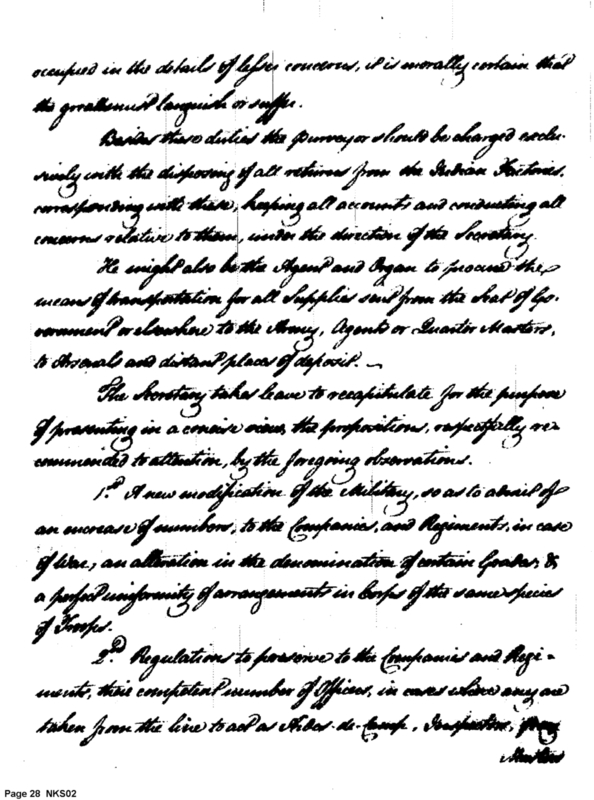 occupied in the details of lesser concerns, it is morally certain that
the greater must languish or suffer.
Besides these duties the Purveyor should be charged exclu-
sively with the disposing of all returns from the Indian Factories,
corresponding with these, keeping all accounts and conducting all
concerns relative to them, under the direction of the Secretary.
He might also be the Agent and Organ to procure the
means of transportation for all Supplies sent from the Seat of Go-
vernment or elsewhere to the Army, Agents or Quarter Masters,
to Arsenals and distant places of deposit.
The Secretary takes leave to recapitulate for the purpose
of presenting in a concise view, the propositions, respectfully re-
commended to attention, by the foregoing observations.
1.st A new modification of the Military, so as to admit of
an encrease of numbers, to the Companies, and Regiments, in case
of War, an alteration in the denomination of certain Grades, &
a perfect uniformity of arrangements in Corps of the same species
of Troops.
2.nd Regulations to preserve to the Companies and Regi-
ments, their competent number of Officers, in cases where any are
taken from the line to act as Aides-de-Camp, Inspectors,
Masters
Page 28 NKS02